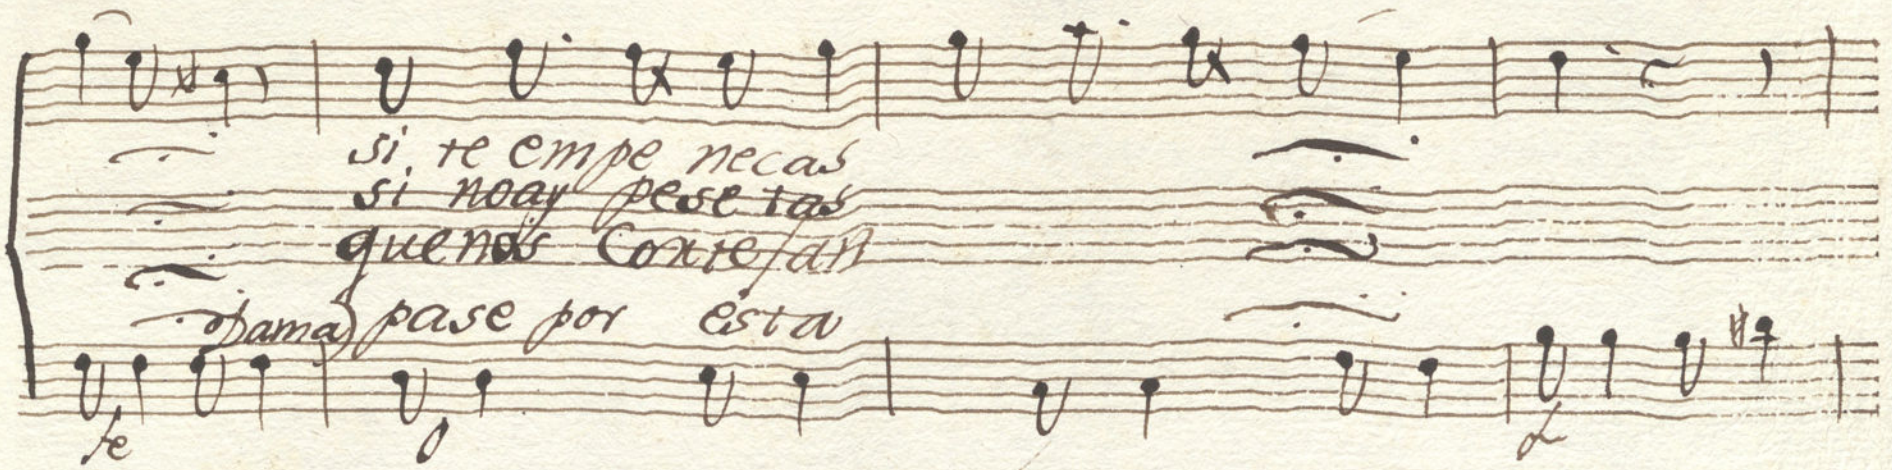 si te empe necas
si noay pesetas
quenos Cortejan
Dama) pase por esta
fe